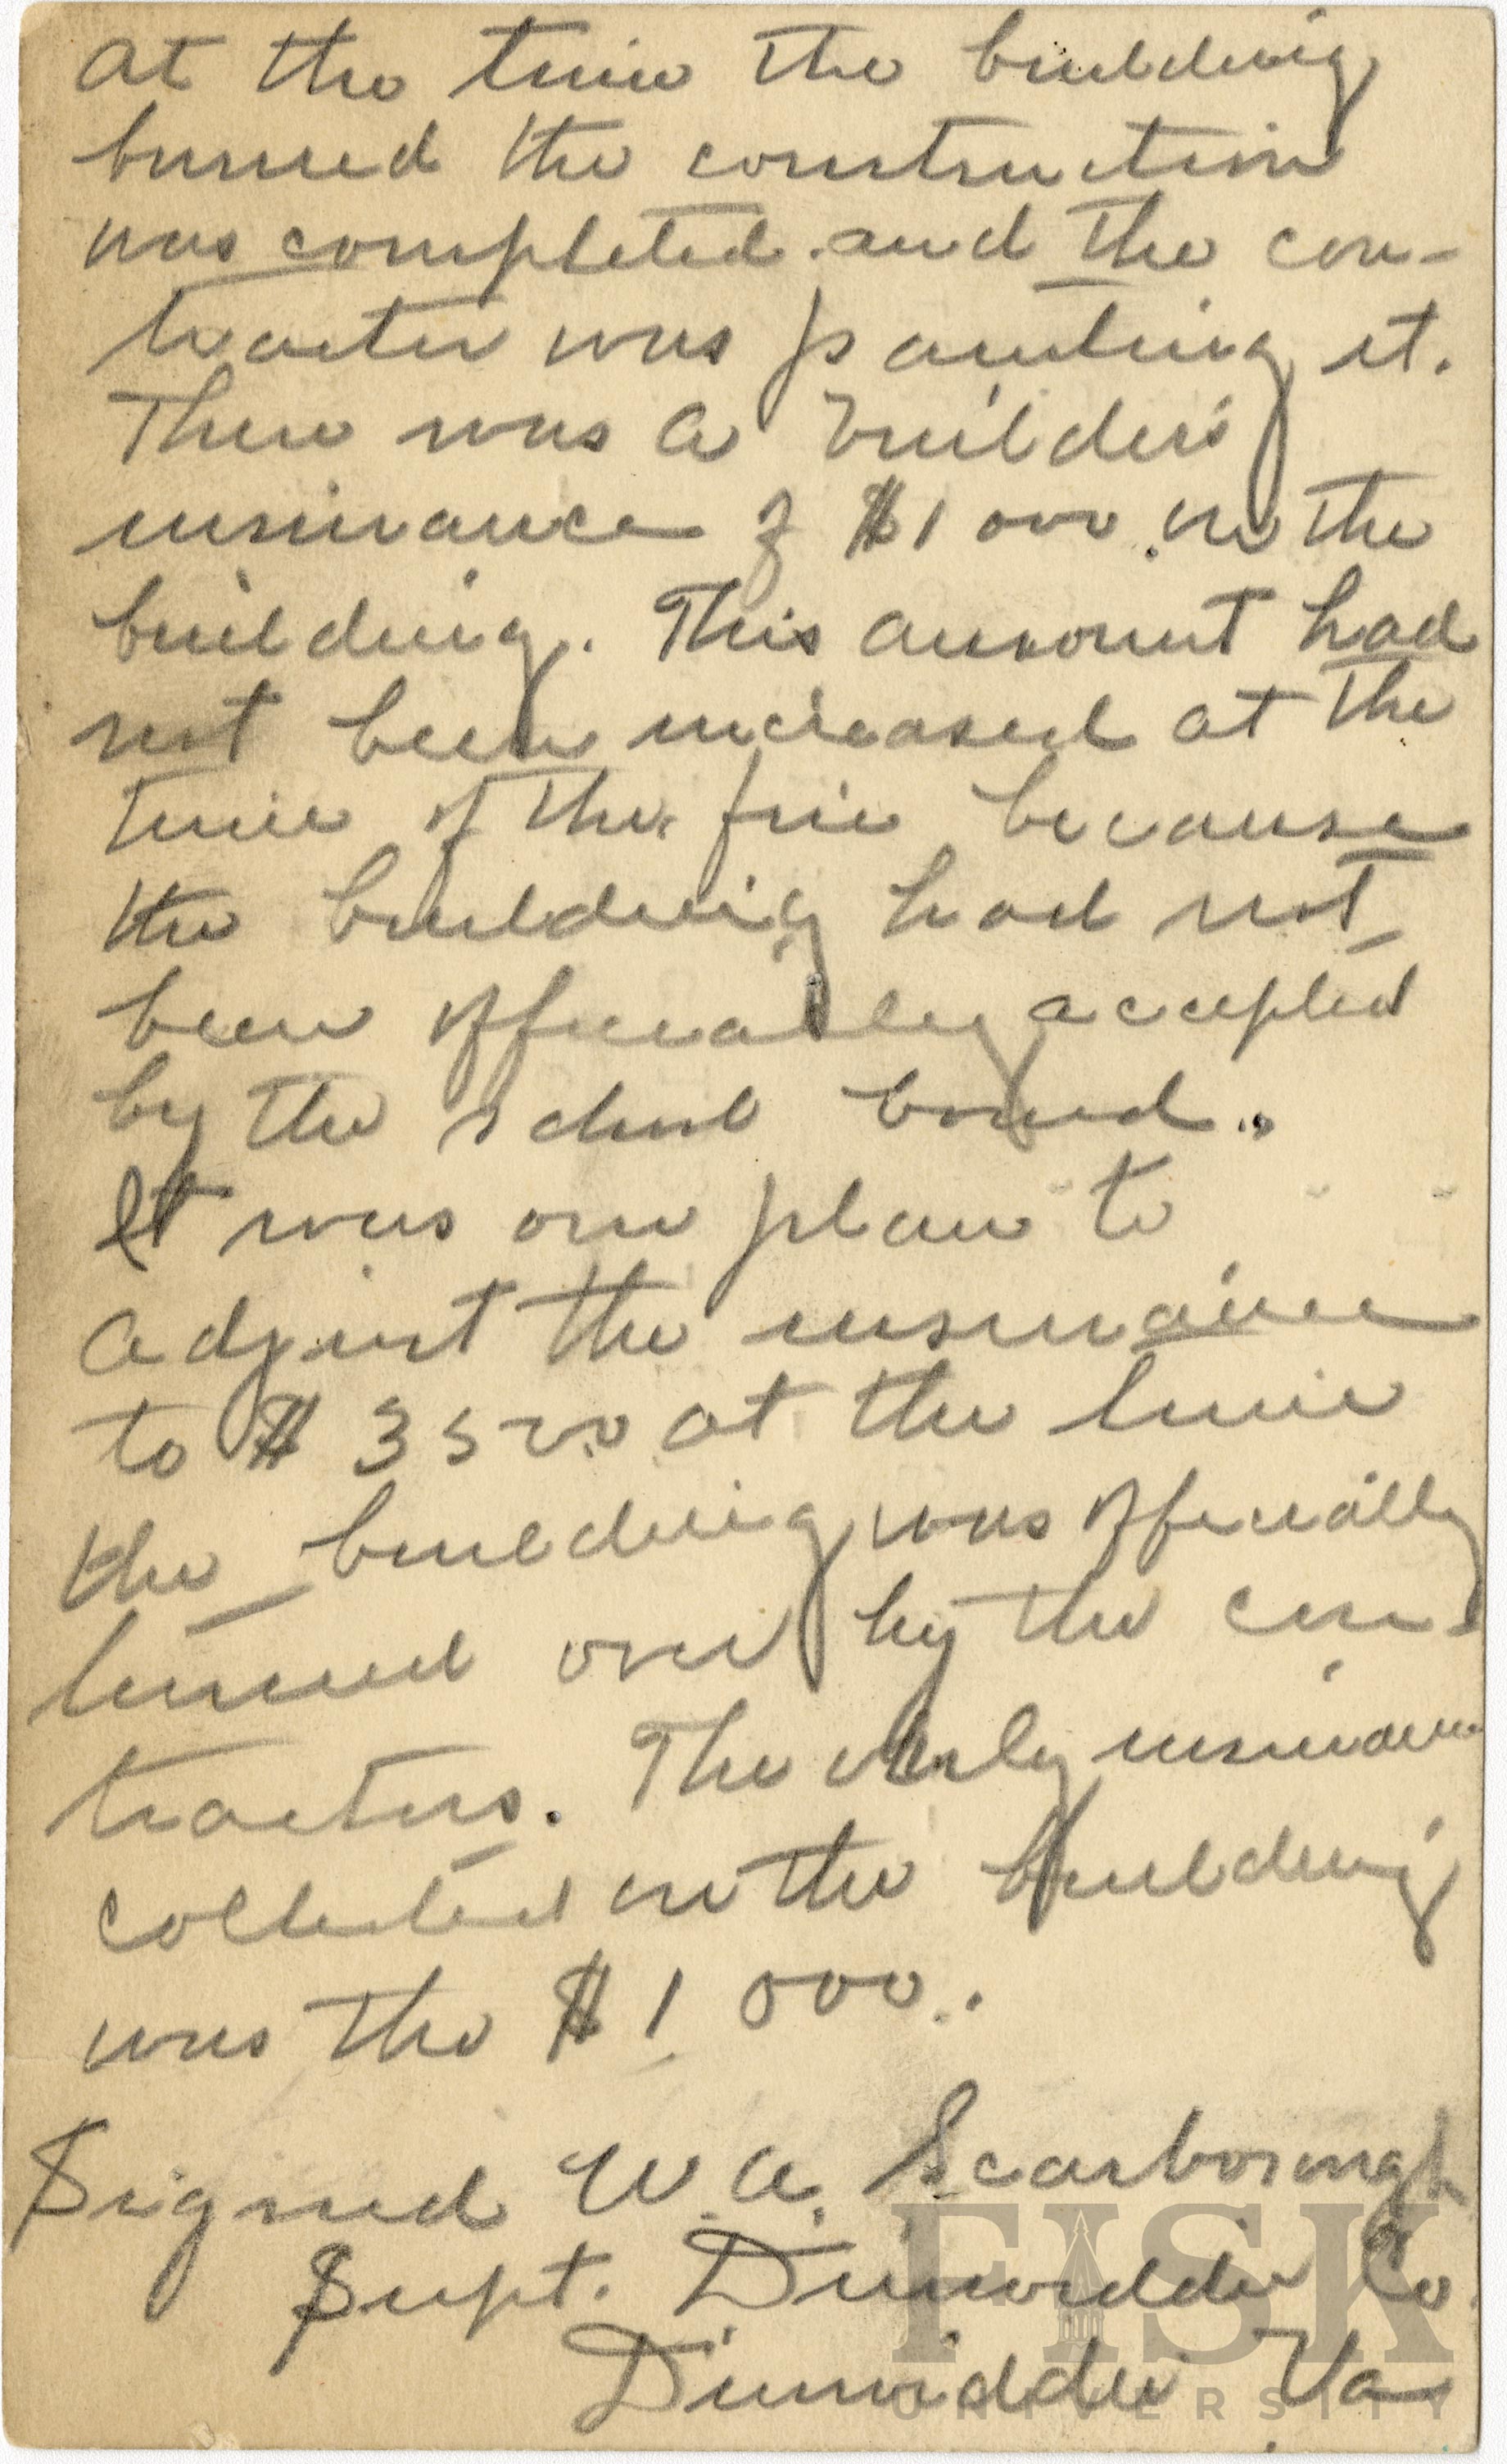 at the time the building
burned the construction
was completed and the con-
tractor was painting it.
There was a builder's
insurance of $1000 on the
building. This amount had
not been increased at the
time of the fire because
the building had not
been officially accepted
by the school board.
It was our plan to
adjust the insurance
to $3500 at the time
the building was officially
turned over by the con-
tractors. The only insurance
collected on the building
was the $1000.
Signed W. A. Scarborough
Supt. Dinwiddie Co
Dinwiddie Va
FISK
UNIVERSITY